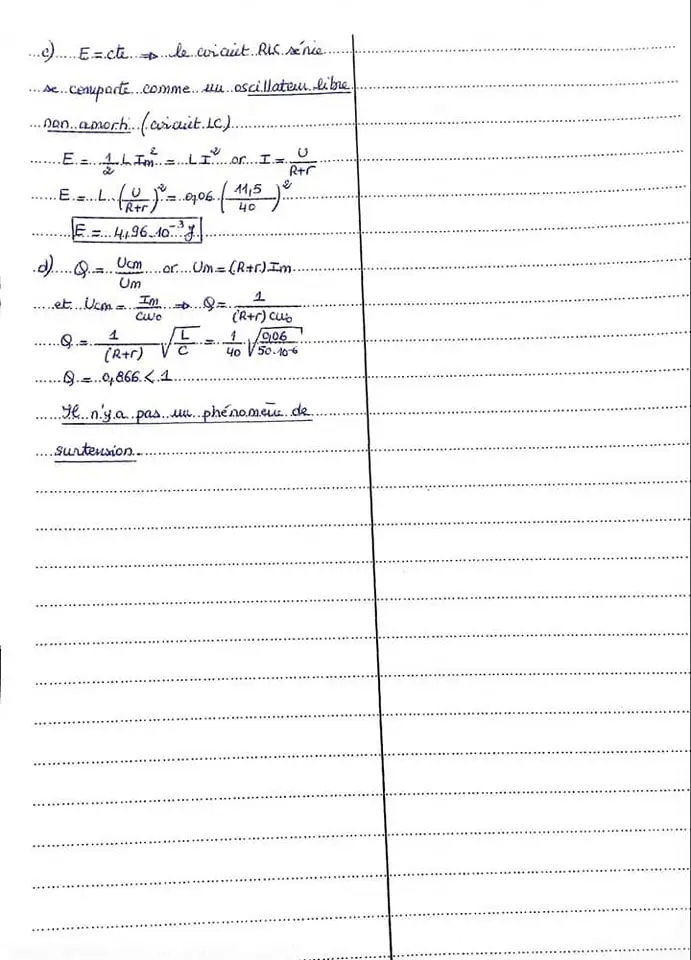 c) E = cte ⇒ le circuit RLC série
se comporte comme un oscillateur libre
non amorti (circuit LC)
E = 1/2 L Im² = L I² or I = U/(R+r)
E = L (U/(R+r))² = 0,06 (11,5/40)²
E = 4,96.10⁻³ J
d) Q = Ucm/Um or Um = (R+r).Im
et Ucm = Im/Cω₀ ⇒ Q = 1/((R+r)Cω₀)
Q = 1/(R+r) √(L/C) = 1/40 √(0,06/50.10⁻⁶)
Q = 0,866 < 1
Il n'y a pas un phénomène de
surtension